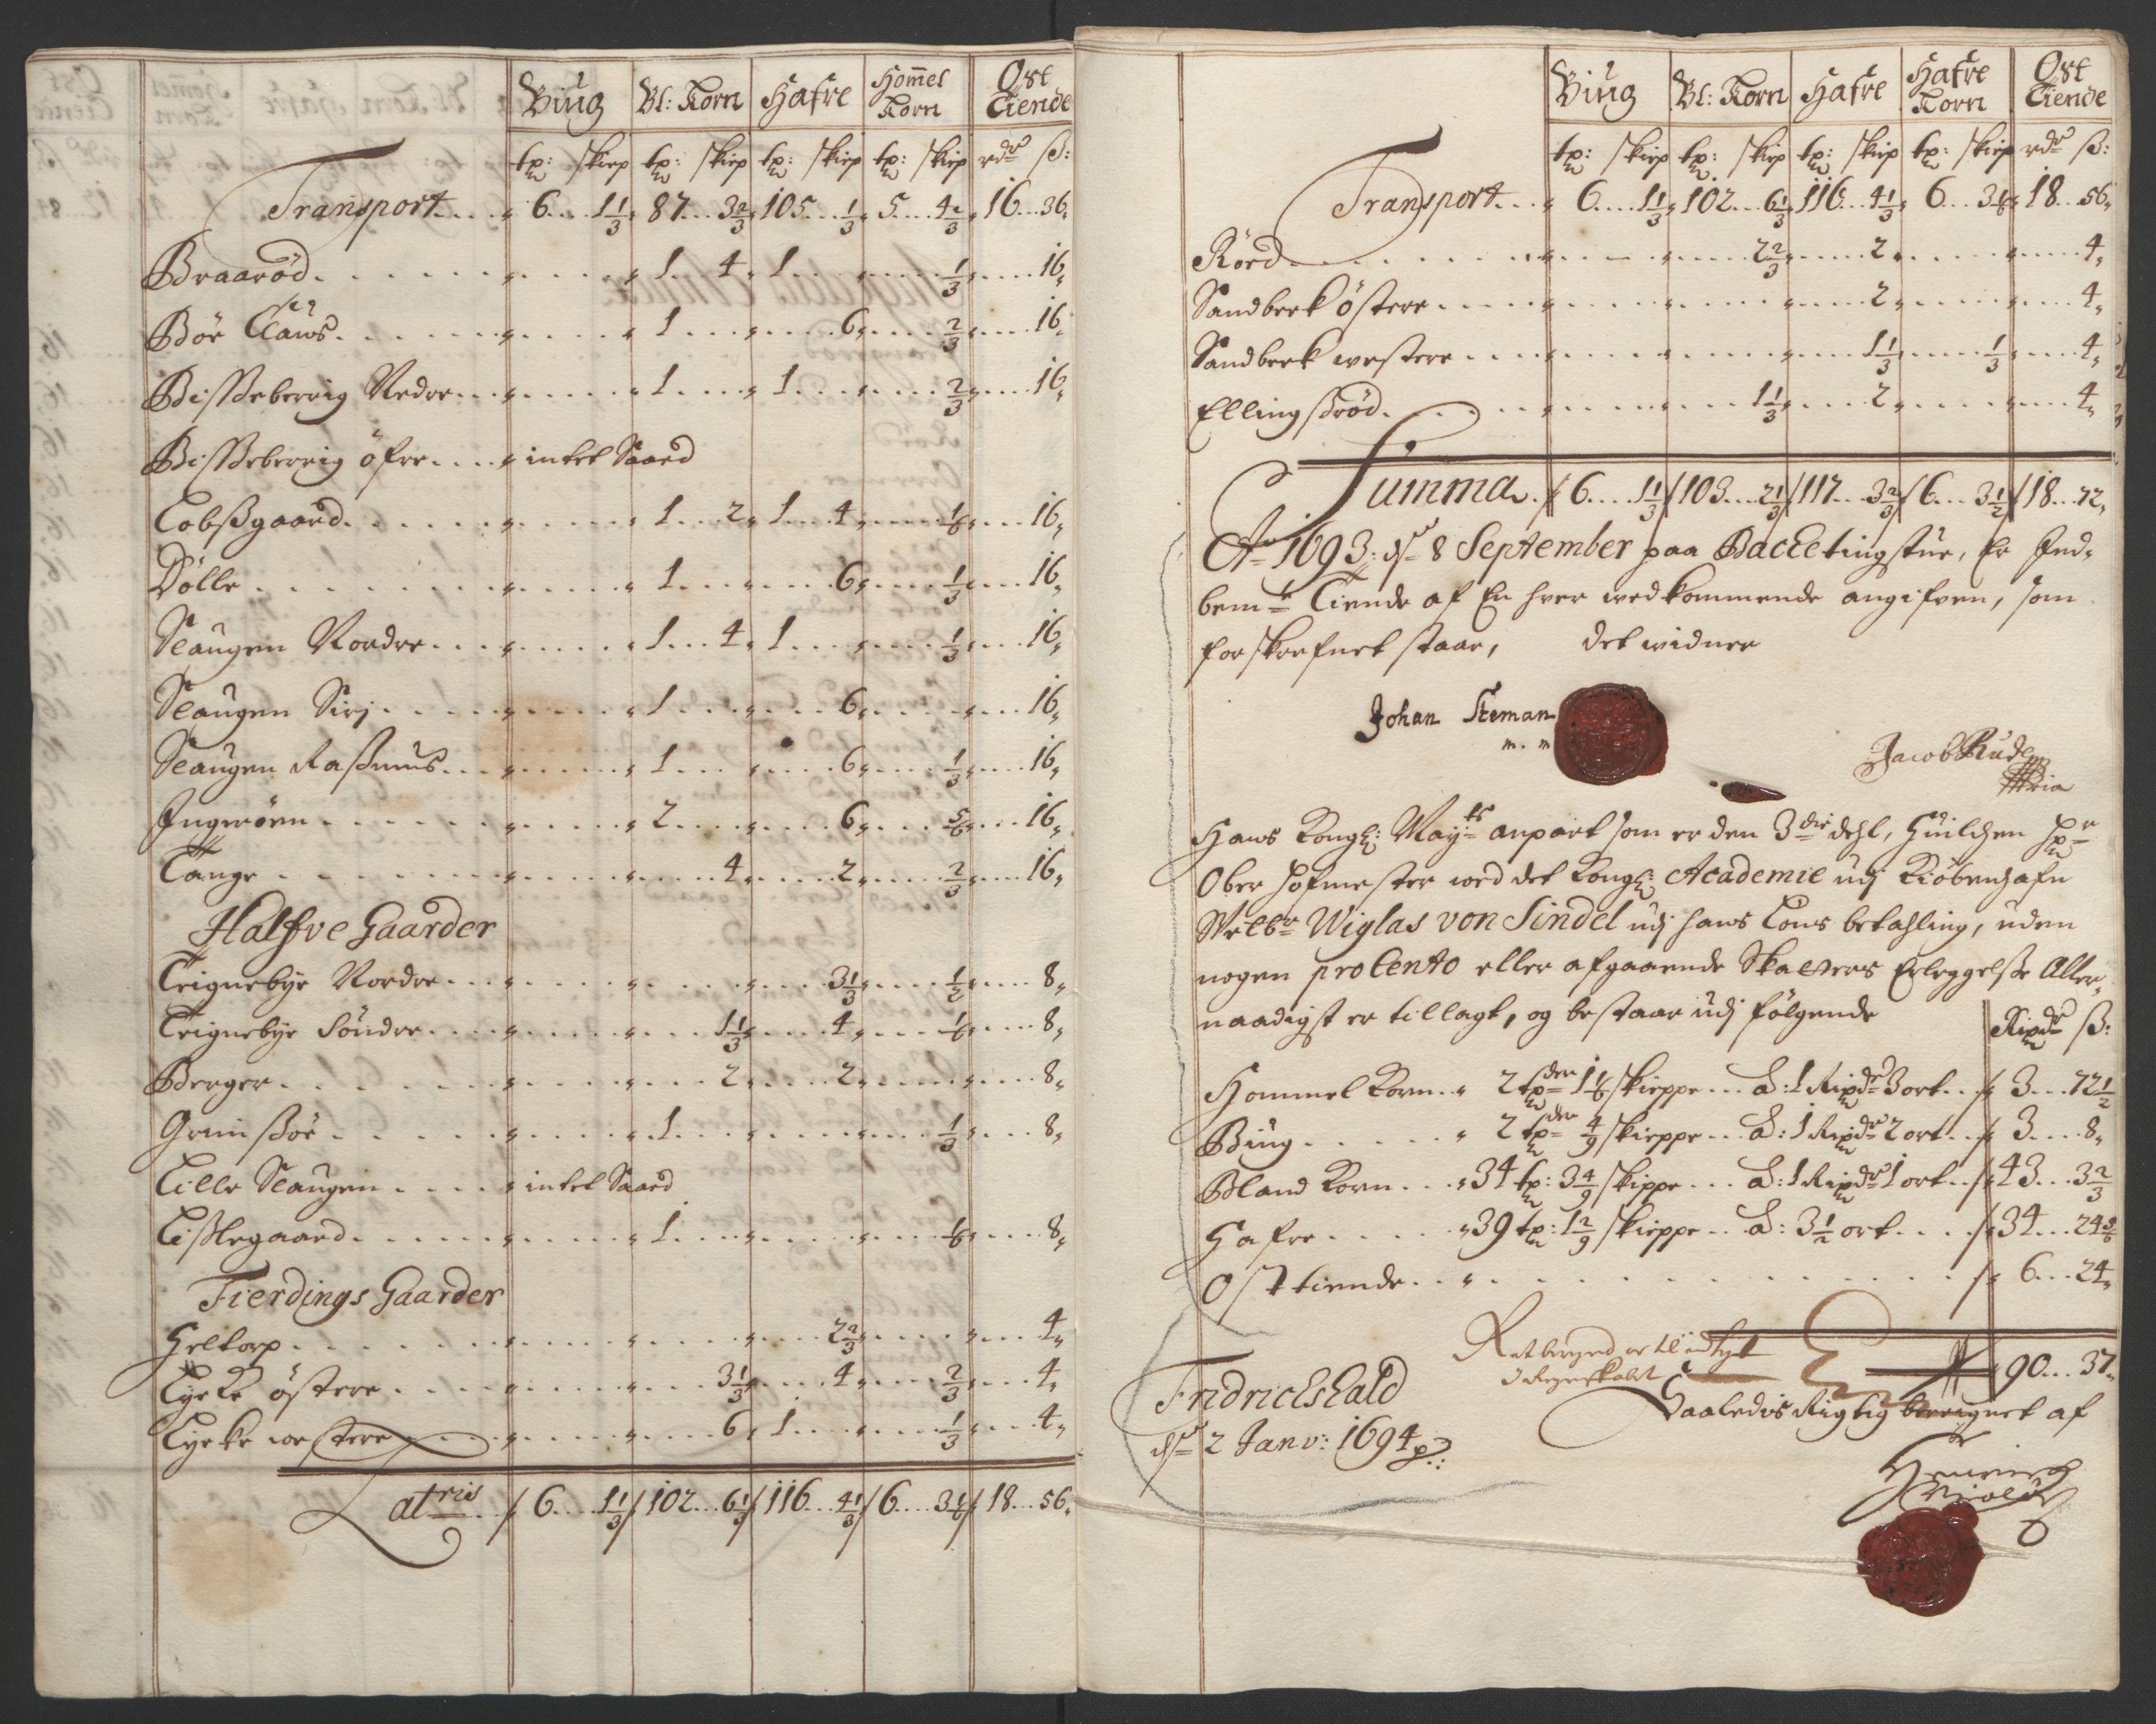 Biug Bl: Korn Hafre Hommel Korn Ost Tiende
tp: skiep tp: skiep tp: skiep tp: skiep rdr ß:
Transport 6 1 1/3 87 3 2/3 105 1/3 5 4 2/3 16 36
Braarød 1 4 1 1/3 16
Böe Claus 1 6 2/3 16
Bisseberrig Nedre 1 1 2/3 16
Bisseberrig öfre intet Saaed
Lobssgaard 1 2 1 4 1/6 16
Dölle 1 6 1/3 16
Slaugen Nordre 1 4 1 1/3 16
Slaugen Siri 1 6 16
Slaugen Rassmus 1 6 1/3 16
Ingerören 2 6 5/6 16
Tange 4 2 2/3 16
Halfve Gaarder
Teignebye Nordre 3 1/3 1/2 8
Teignebye Söndre 1 1/3 4 1/6 8
Berger 2 2 8
Grimssöe 1 1/3 8
Lille Slaugen intet Saaed
Tisslegaard 1 1/6 8
Fierdings Gaarder
Heltorp 2 2/3 4
Lycke östere 3 1/3 4 2/3 4
Lycke westere 6 1 1/3 4
Latris 6 1 1/3 102 6 1/3 116 4 1/3 6 3 1/6 18 56
Biug Bl: Korn Hafre Hafre Korn Ost Tiende
tp: skiep tp: skiep tp: skiep tp: skiep rdr ß:
Transport 6 1 1/3 102 6 1/3 116 4 1/3 6 3 1/6 18 56
Röed 2 2/3 2 4
Sandbeck östere 2 4
Sandbeck westere 1 1/3 1/3 4
Ellingssröd 1 1/3 2 4
Summa 6 1 1/3 103 2 1/3 117 3 2/3 6 3 1/2 18 72
Ao 1693: dn 8 September paa Backe tingstue, Er Ind-
bemte Tiende af En hver wedkommende angifven, som
forskrefuet staar, det widner
Johan Steman
m. m
Jacob Rude
Mpria
Hans Kongl: Mayts anpart som er den 3die dehl, huilchen Hr
Ober Hofmester wed det Kongl: Academie udj Kiöbenhafn
Welbr Wiglas von Sindel udj hans Löns betahling, uden
nogen pro Cento eller afgaaende Skatters Erleggelsse Aller-
naadigst er tillagt, og bestaar udj fölgende Rixdr ß:
Hommel Korn 2 tpder 1 1/6 skieppe a: 1 Rixdr 3 ort 3 72 1/2
Biug 2 tpder 4/9 skieppe a: 1 Rixdr 2 ort 3 8
Bland Korn 34 tp: 3 4/9 skippe a: 1 Rixdr 1 ort 43 3 2/3
Hafre 39 tp: 1 2/9 skieppe a: 3 1/2 ort 34 24 5/6
Osttiende 6 24
90 37
Fridrichshald
dn 2 Janv: 1694
Saaledis Rigtig beregnet af